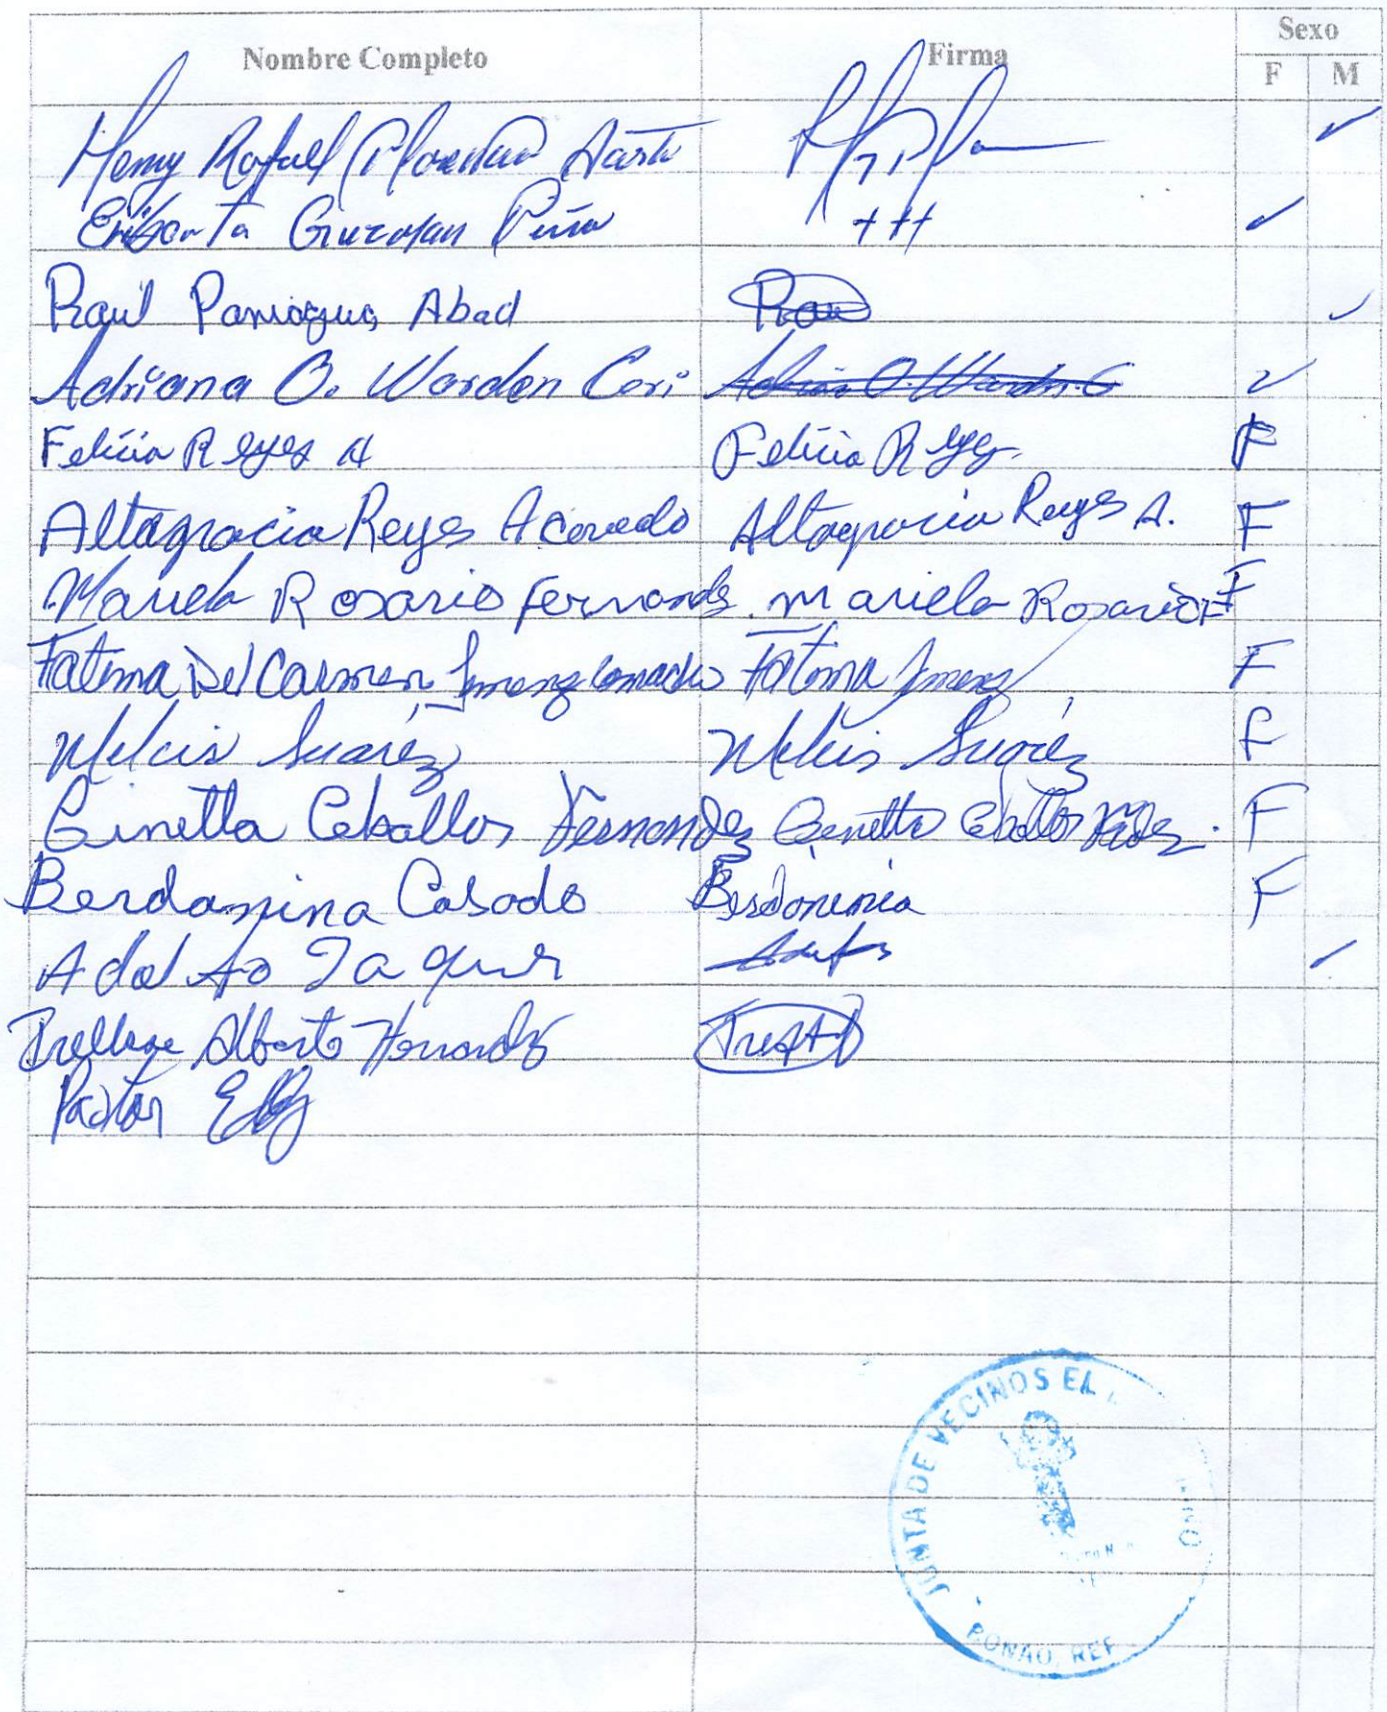 Nombre Completo Firma Sexo
F M
Henry Rafael
Guzman Peña +++
Raul Paniagua Abad Rau
Adriana O. Wardon Cori Adriana O. Wardon C
Felicia Reyes A Felicia Reyes F
Altagracia Reyes Acevedo Altagracia Reyes A. F
Mariela Rosario Fernandz. Mariela Rosario F F
Fatima Del Carmen Fatima Jimenz F
Melcis Suárez Melcis Suárez F
Ginetta Ceballos Fernandez Ginetta Ceballos F
Berdamina Casado Berdonimia F
Adolfo
Alberto Hernandz
Pastor Eddy
JUNTA DE VECINOS EL
BONAO, REP